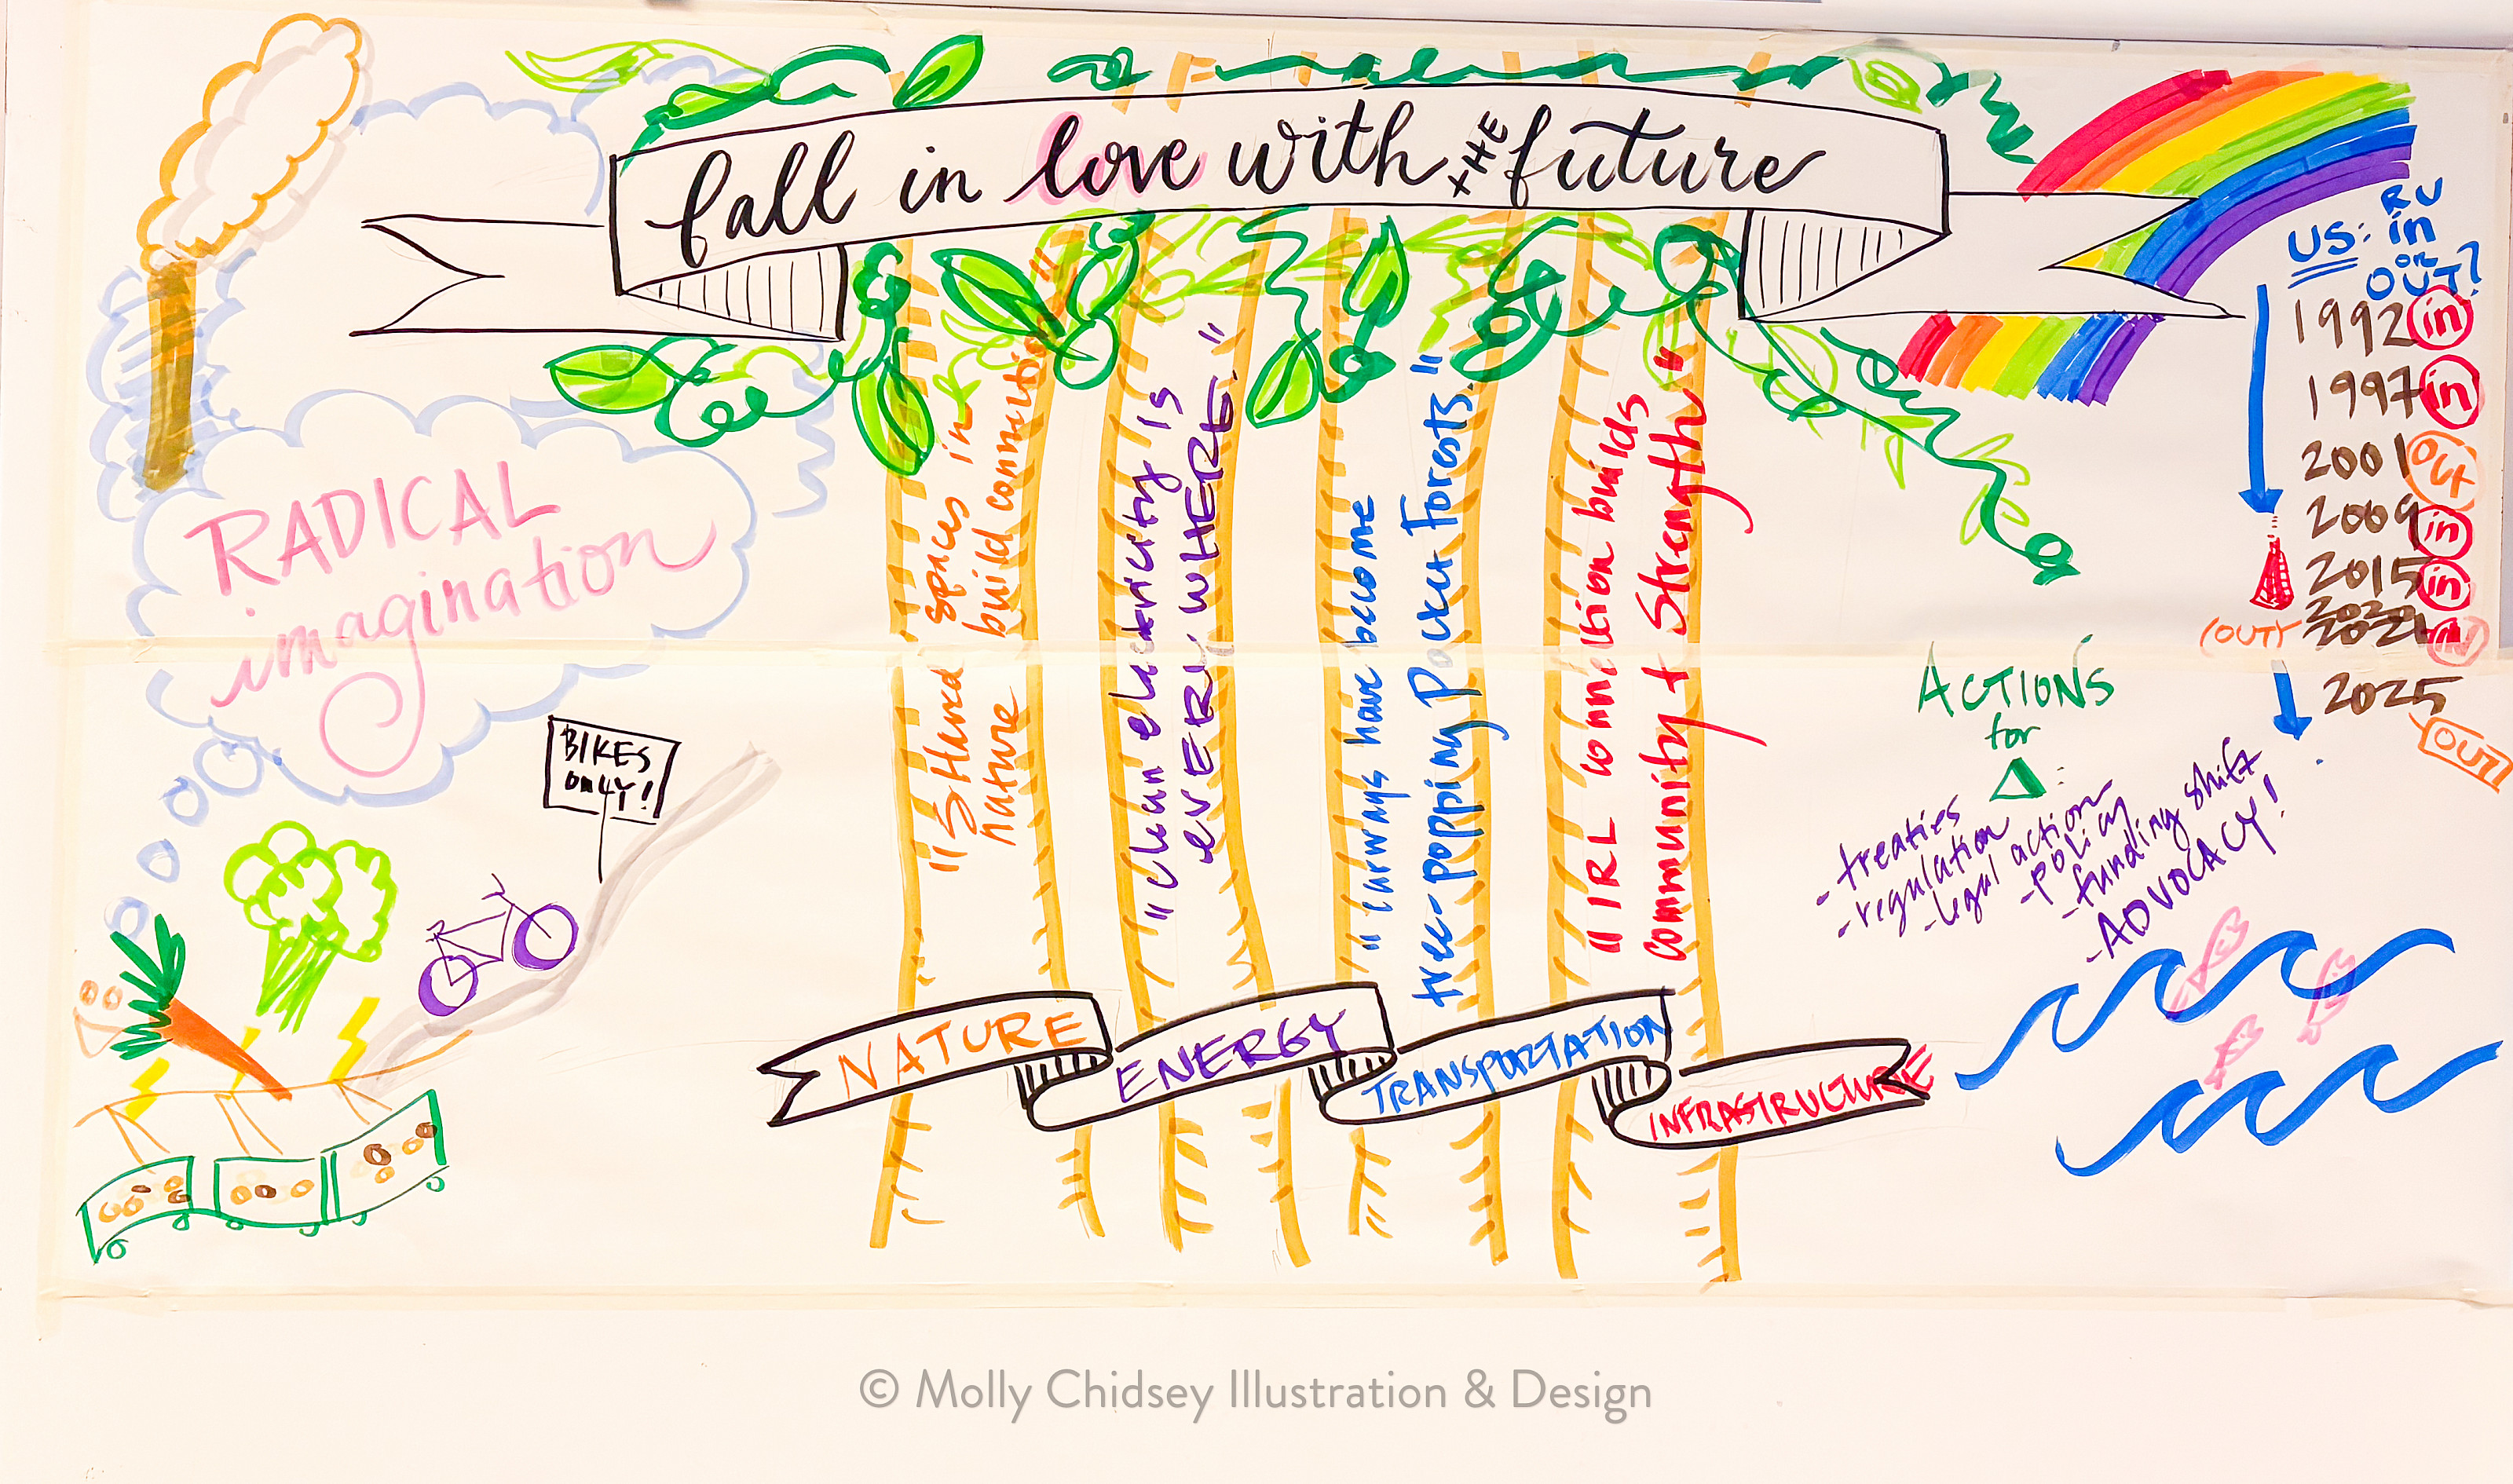 fall in love with THE future
RADICAL
imagination
BIKES
ONLY!
"Shared spaces in
nature build connection"
"clean electricity is
EVERYWHERE."
"carways have become
tree-popping Pocket Forests."
"IRL connection builds
community + Strength"
NATURE
ENERGY
TRANSPORTATION
INFRASTRUCTURE
US: in
OR
OUT?
1992 in
1997 in
2001 OUT
2009 in
2015 in
(OUT) 2020
2021 IN
2025
OUT!
ACTIONS
for
Δ
- treaties
- regulation
- legal action
- policy
- funding shift
- ADVOCACY!
© Molly Chidsey Illustration & Design